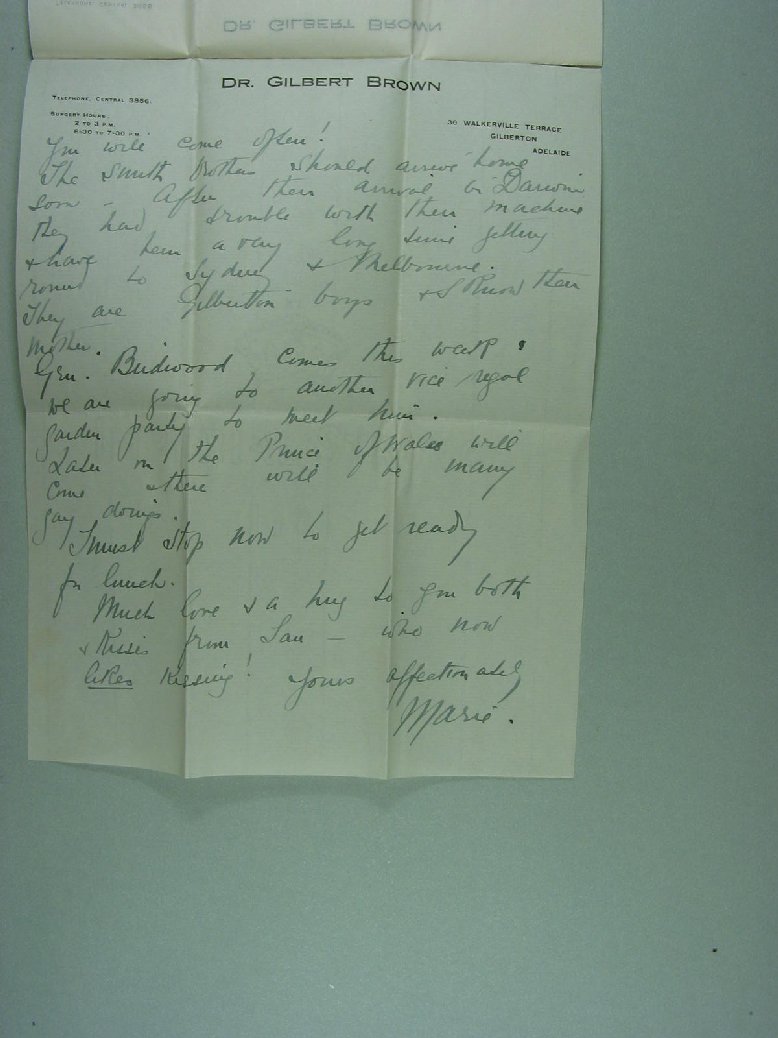 DR. GILBERT BROWN
DR. GILBERT BROWN
TELEPHONE, CENTRAL 3856.
SURGERY HOURS.
2 TO 3 P.M.
6-30 TO 7-30 P.M.
36 WALKERVILLE TERRACE
GILBERTON
ADELAIDE
You will come often!
The Smith Brothers should arrive home
soon - After their arrival in Darwin
they had trouble with their machine
& have been a very long time getting
round to Sydney & Melbourne.
They are Gilberton boys & I know their
mother.
Gen. Birdwood comes this week &
we are going to another vice regal
garden party to meet him.
Later on the Prince of Wales will
come & there will be many
gay doings.
I must stop now to get ready
for lunch.
Much love & a hug to you both
& kisses from Ian - who now
likes kissing! Yours affectionately
Marie.